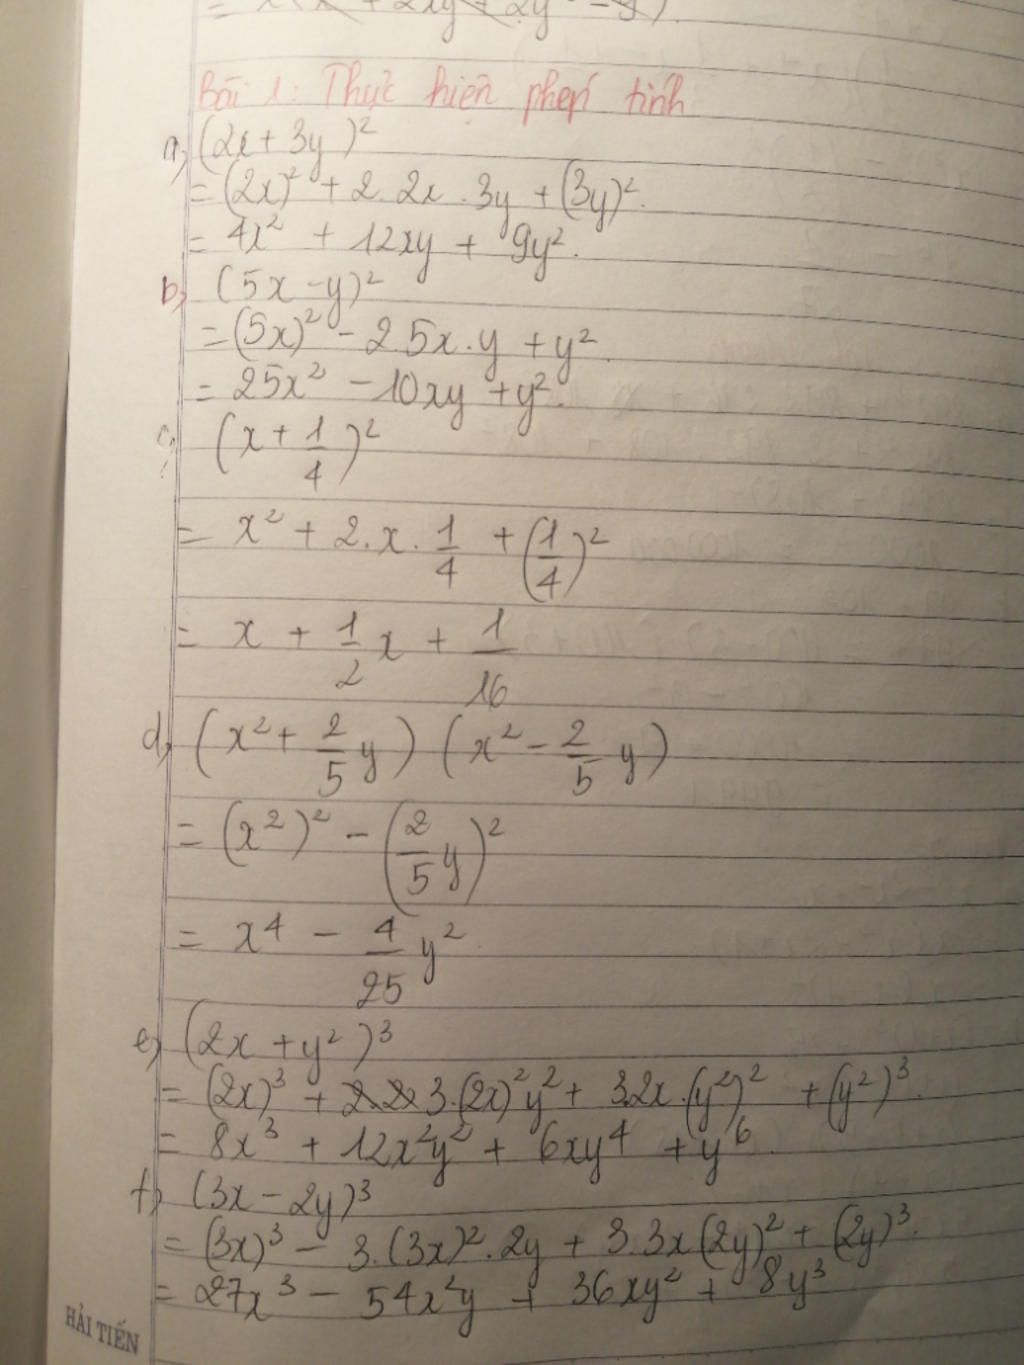 Bài 1: Thực hiện phép tính
a) (2x + 3y)²
= (2x)² + 2.2x.3y + (3y)².
= 4x² + 12xy + 9y².
b) (5x - y)²
= (5x)² - 2.5x.y + y².
= 25x² - 10xy + y².
c) (x + 1/4)²
= x² + 2.x.1/4 + (1/4)²
= x + 1/2 x + 1/16
d) (x² + 2/5 y) (x² - 2/5 y)
= (x²)² - (2/5 y)²
= x⁴ - 4/25 y²
e) (2x + y²)³
= (2x)³ + 3.(2x)² y² + 3.2x.(y²)² + (y²)³.
= 8x³ + 12x²y² + 6xy⁴ + y⁶.
f) (3x - 2y)³
= (3x)³ - 3.(3x)².2y + 3.3x(2y)² + (2y)³.
= 27x³ - 54x²y + 36xy² + 8y³
HẢI TIẾN